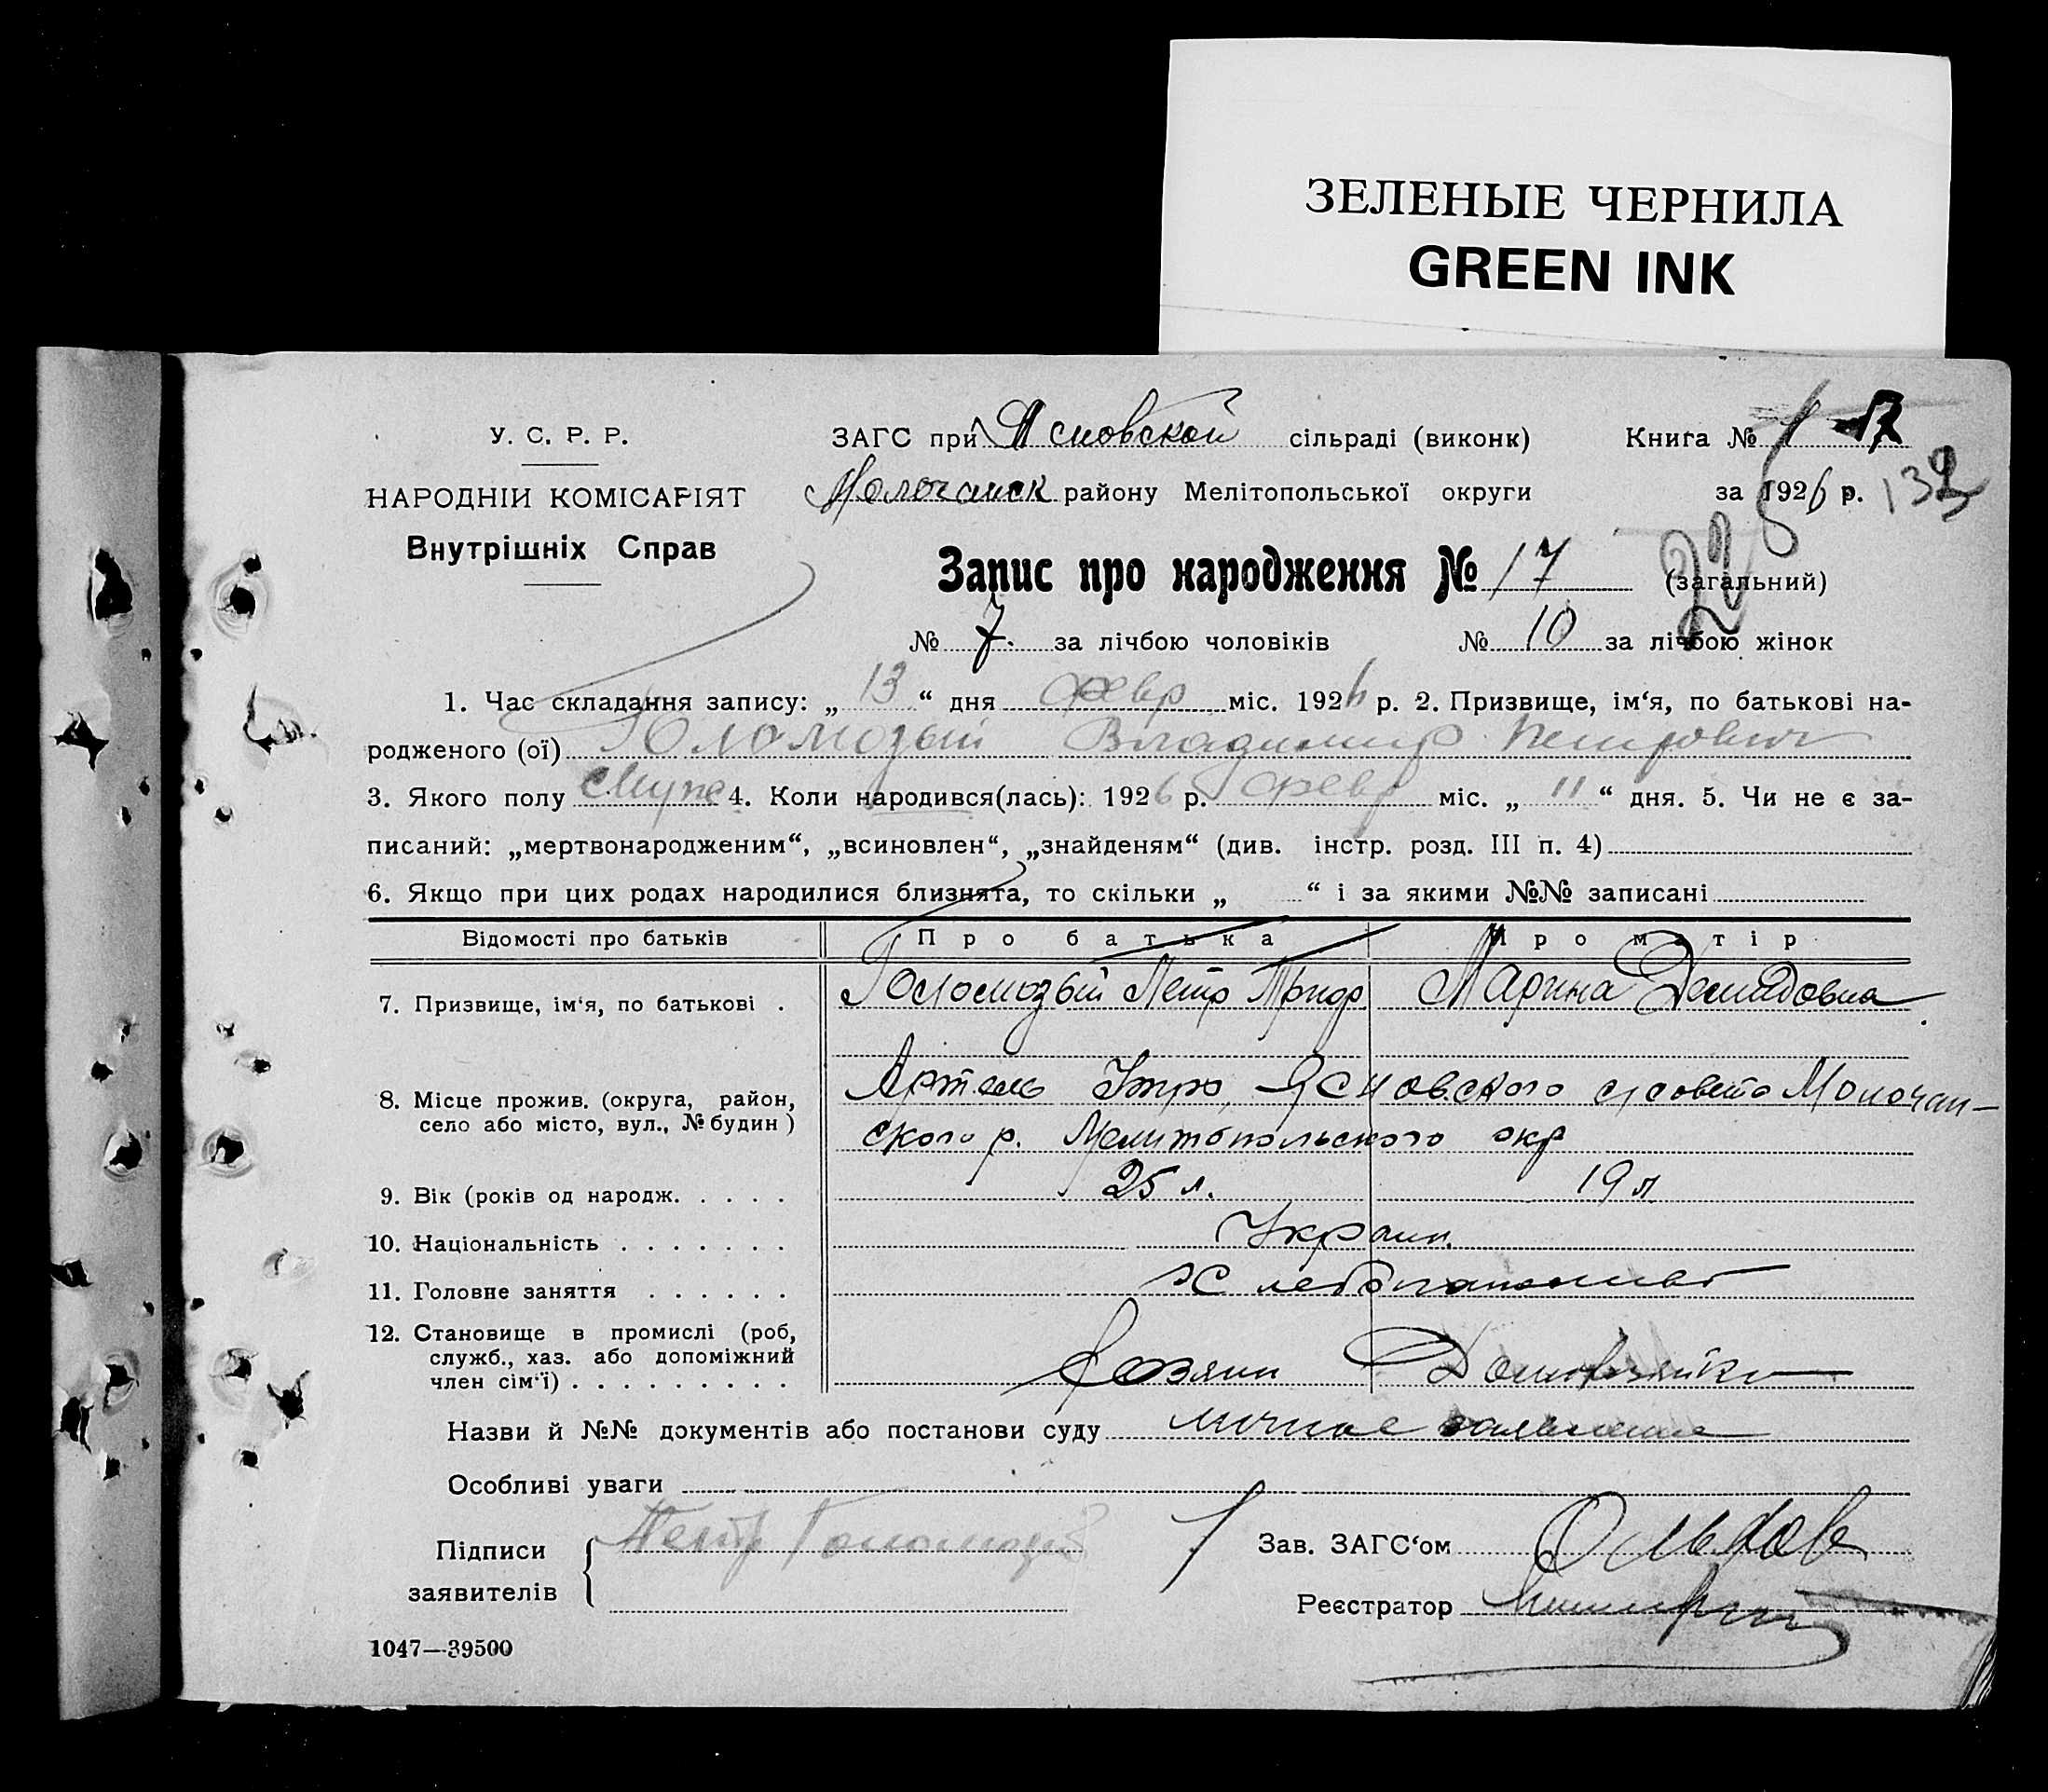 ЗЕЛЕНЫЕ ЧЕРНИЛА
GREEN INK
У. С. Р. Р.
НАРОДНІЙ КОМІСАРІЯТ
Внутрішніх Справ
ЗАГС при Ясновской сільраді (виконк)
Молочанск району Мелітопольської округи
Книга № 1 17
за 1926 р. 132
Запис про народження № 17 (загальний)
22
№ 7. за лічбою чоловіків № 10 за лічбою жінок
1. Час складання запису: „ 13 “ дня февр міс. 1926 р. 2. Призвище, ім‘я, по батькові на-
родженого (ої)Голомозый Владимир Петрович
3. Якого полу Муже 4. Коли народився(лась): 1926 р. февр міс. „ 11 “ дня. 5. Чи не є за-
писаний: „мертвонародженим“, „всиновлен“, „знайденям“ (див. інстр. розд. III п. 4)
6. Якщо при цих родах народилися близнята, то скільки „ “ і за якими №№ записані
Відомості про батьків Про батька Про матір
7. Призвище, ім‘я, по батькові . Голомозый Петр Марина Демидовна
8. Місце прожив. (округа, район, село або місто, вул., № будин) Артель Утро, Ясновского с/совета Молочан-
ского р. Мелитопольского окр
9. Вік (років од народж. . . . . 25 л. 19 л
10. Національність . . . . . . . Украин.
11. Головне заняття . . . . . . Хлебопашество
12. Становище в промислі (роб,
служб., хаз. або допоміжний
член сім‘ї) . . . . . . . . . Хозяин Домохозяйка
Назви й №№ документів або постанови суду личное заявление
Особливі уваги
Підписи
заявителів
Петр Голомозый
Зав. ЗАГС‘ом
Реєстратор
1047—39500